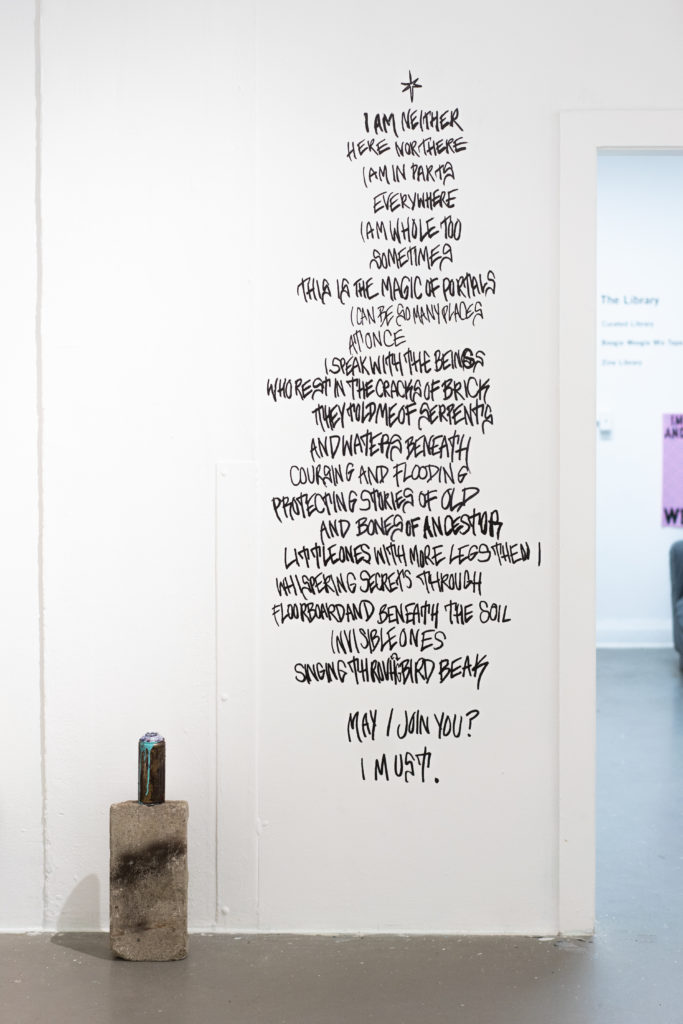 I AM NEITHER
HERE NOR THERE
I AM IN PARTS
EVERYWHERE
I AM WHOLE TOO
SOMETIMES
THIS IS THE MAGIC OF PORTALS
I CAN BE SO MANY PLACES
AT ONCE
I SPEAK WITH THE BEINGS
WHO REST IN THE CRACKS OF BRICK
THEY TOLD ME OF SERPENTS
AND WATERS BENEATH
COURSING AND FLOODING
PROTECTING STORIES OF OLD
AND BONES OF ANCESTOR
LITTLE ONES WITH MORE LEGS THEN I
WHISPERING SECRETS THROUGH
FLOORBOARD AND BENEATH THE SOIL
INVISIBLE ONES
SINGING THROUGH BIRD BEAK
MAY I JOIN YOU?
I MUST.
The Library
Curated Library
Boogie Woogie Mix Tape
Zine Library
IM
AND
WI